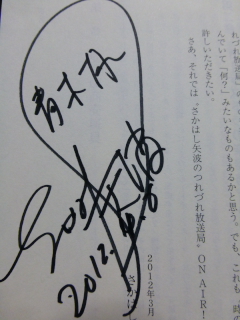 れづれ放送局
んでいて「何？」みたいなものもあるかと思う。でも、これも
許しいただきたい。
さあ、それでは〝さかはし矢波のつれづれ放送局〟ON AIR!
2012年3月
さかはし
青木様
矢波
2012.